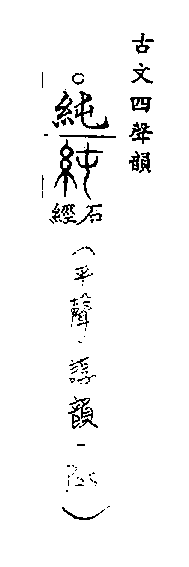 古文四聲韻
○純
純
石經
（平聲・諄韻－